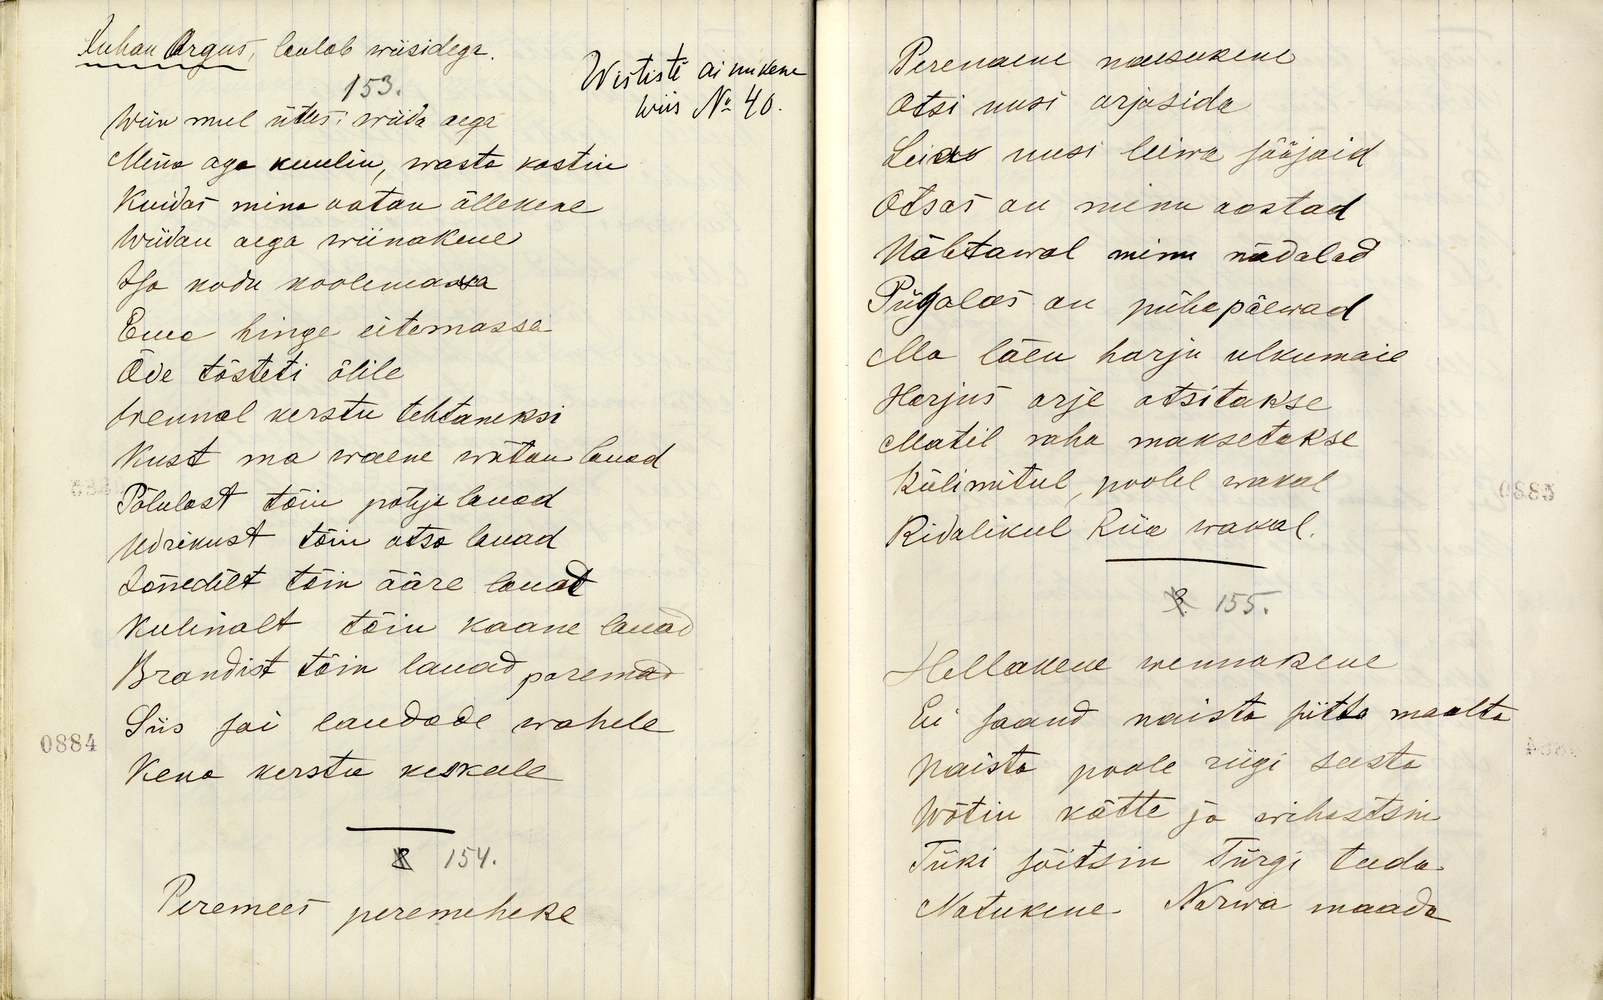 Juhan Argus, laulab wiisidega.
Wististi ainukene
wiis № 40.
153.
Wiin mul ütles: wiida aega
Mina aga kuulin, wasta kostin
Kuidas mina ootan õllekene
Wiidan aega wiinakene
Isa kodu koolemassa
Ema hinge eitemassa
Õde tõsteti õlile
Wennal kerstu tehtaneksi
Kust ma waene wõtan lauad
Põlulast tõin põhja lauad
Udrikust tõin otsa lauad
tõin ääre lauad
Kulinalt tõin kaane lauad
Brandist tõin lauad paremad
Siis sai laudade wahele
Kena kerstu keskele
0884
154.
Peremees peremeheke
Perenaene naesukene
Otsi uusi orjasida
Leia uusi leiwa sööjaid
Otsas on minu aastad
Nähtawal minu nädalad
Piigalas on pühapäewad
Ma läen harju ulkumaie
Harjus orje otsitakse
Matil raha maksetakse
Külimitul, poolel wakal
Ridalikul Riia wakal.
0885
155.
Hellakene wennakene
Ei saand naista siitta maalta
Naista poole riigi seesta
Wõtin kätte ja wihastsin
Tüki sõitsin Türgi teeda
Natukene Narwa maada